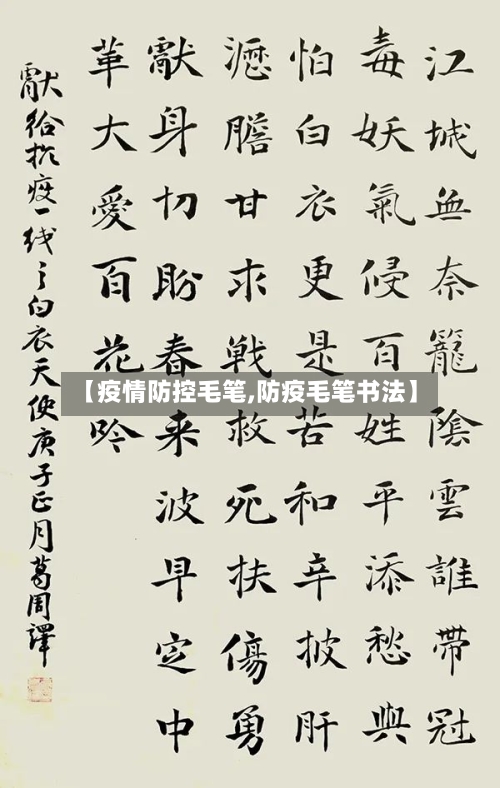 江城無奈籠陰雲誰帶冠
毒妖氣侵百姓平添愁與
怕白衣更是苦和辛披肝
瀝膽甘求戰救死扶傷勇
獻身切盼春来波早定中
華大愛百花吟
獻给抗疫一线之白衣天使庚子正月葛周譯
【疫情防控毛笔,防疫毛笔书法】